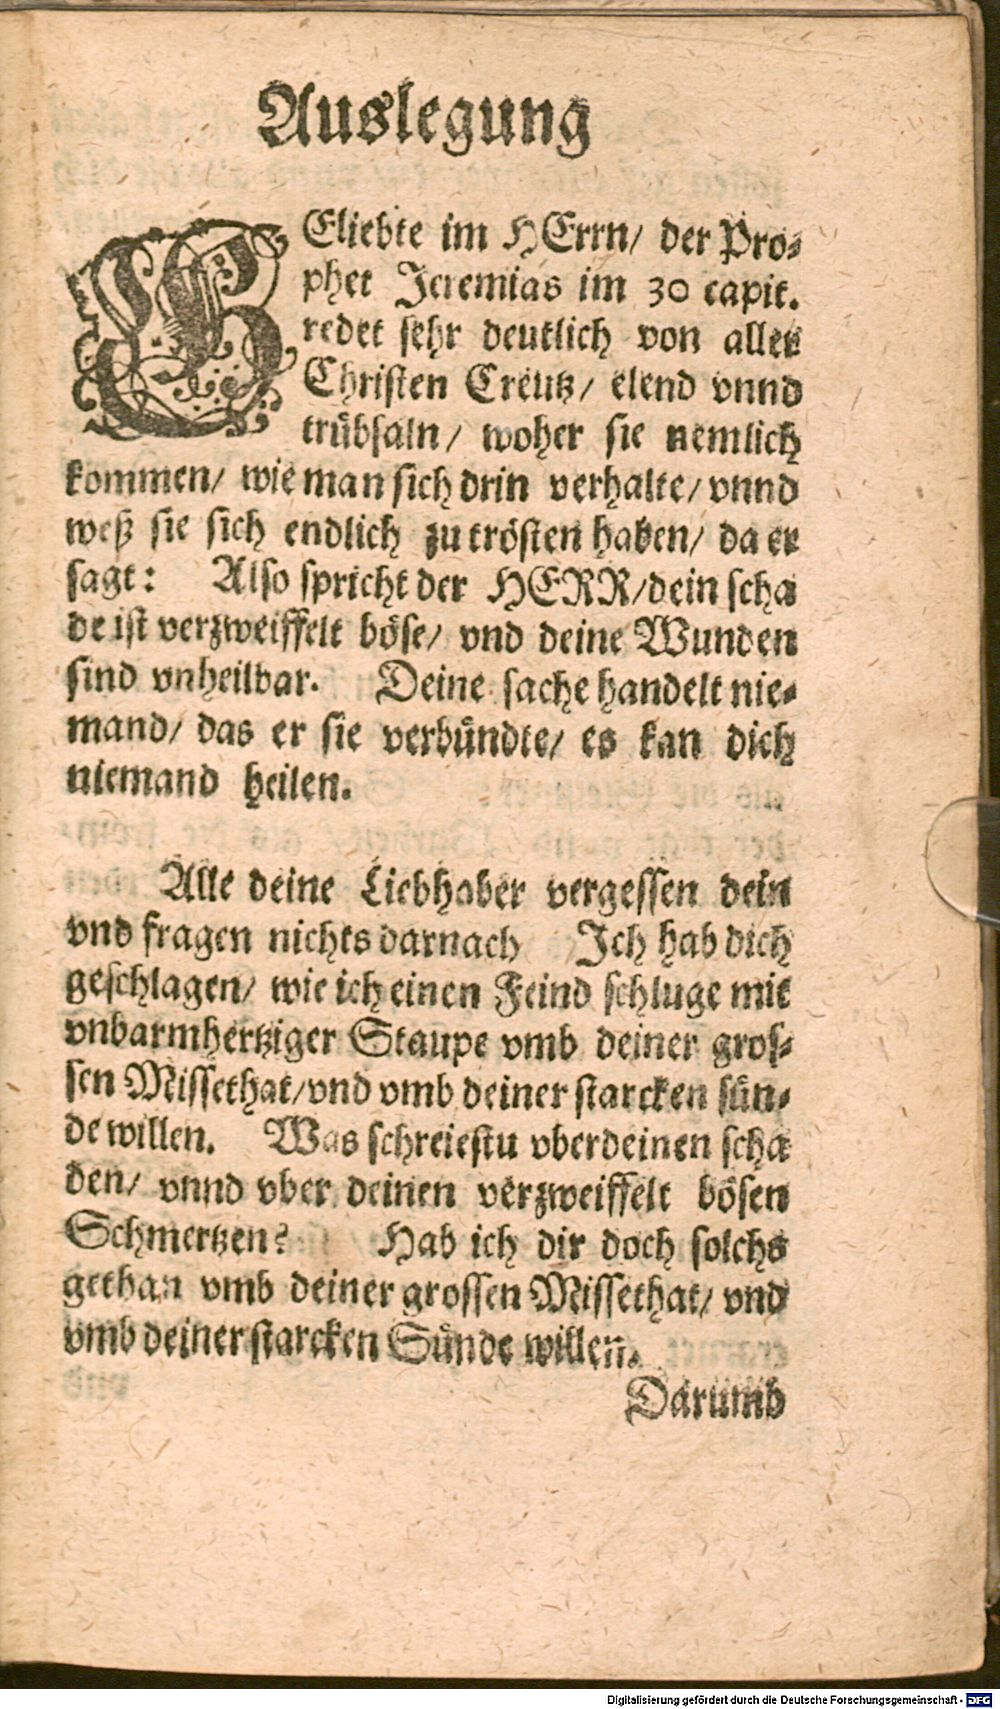 Auslegung
GEliebte im HErrn/ der Pro-
phet Jeremias im 30 capit.
redet sehr deutlich von aller
Christen Creutz/ elend vnnd
trübsaln/ woher sie nemlich
kommen/ wie man sich drin verhalte/ vnnd
weß sie sich endlich zu trösten haben/ da er
sagt: Also spricht der HERR/dein scha
de ist verzweiffelt böse/ vnd deine Wunden
sind vnheilbar. Deine sache handelt nie-
mand/ das er sie verbündte/ es kan dich
niemand heilen.
Alle deine Liebhaber vergessen dein
vnd fragen nichts darnach Ich hab dich
geschlagen/ wie ich einen Feind schluge mit
vnbarmhertziger Staupe vmb deiner gros-
sen Missethat/vnd vmb deiner starcken sün-
de willen. Was schreiestu vber deinen scha
den/ vnnd vber deinen verzweiffelt bösen
Schmertzen? Hab ich dir doch solchs
gethan vmb deiner grossen Missethat/ vnd
vmb deiner starcken Sünde willen.
Darumb
Digitalisierung gefördert durch die Deutsche Forschungsgemeinschaft - DFG